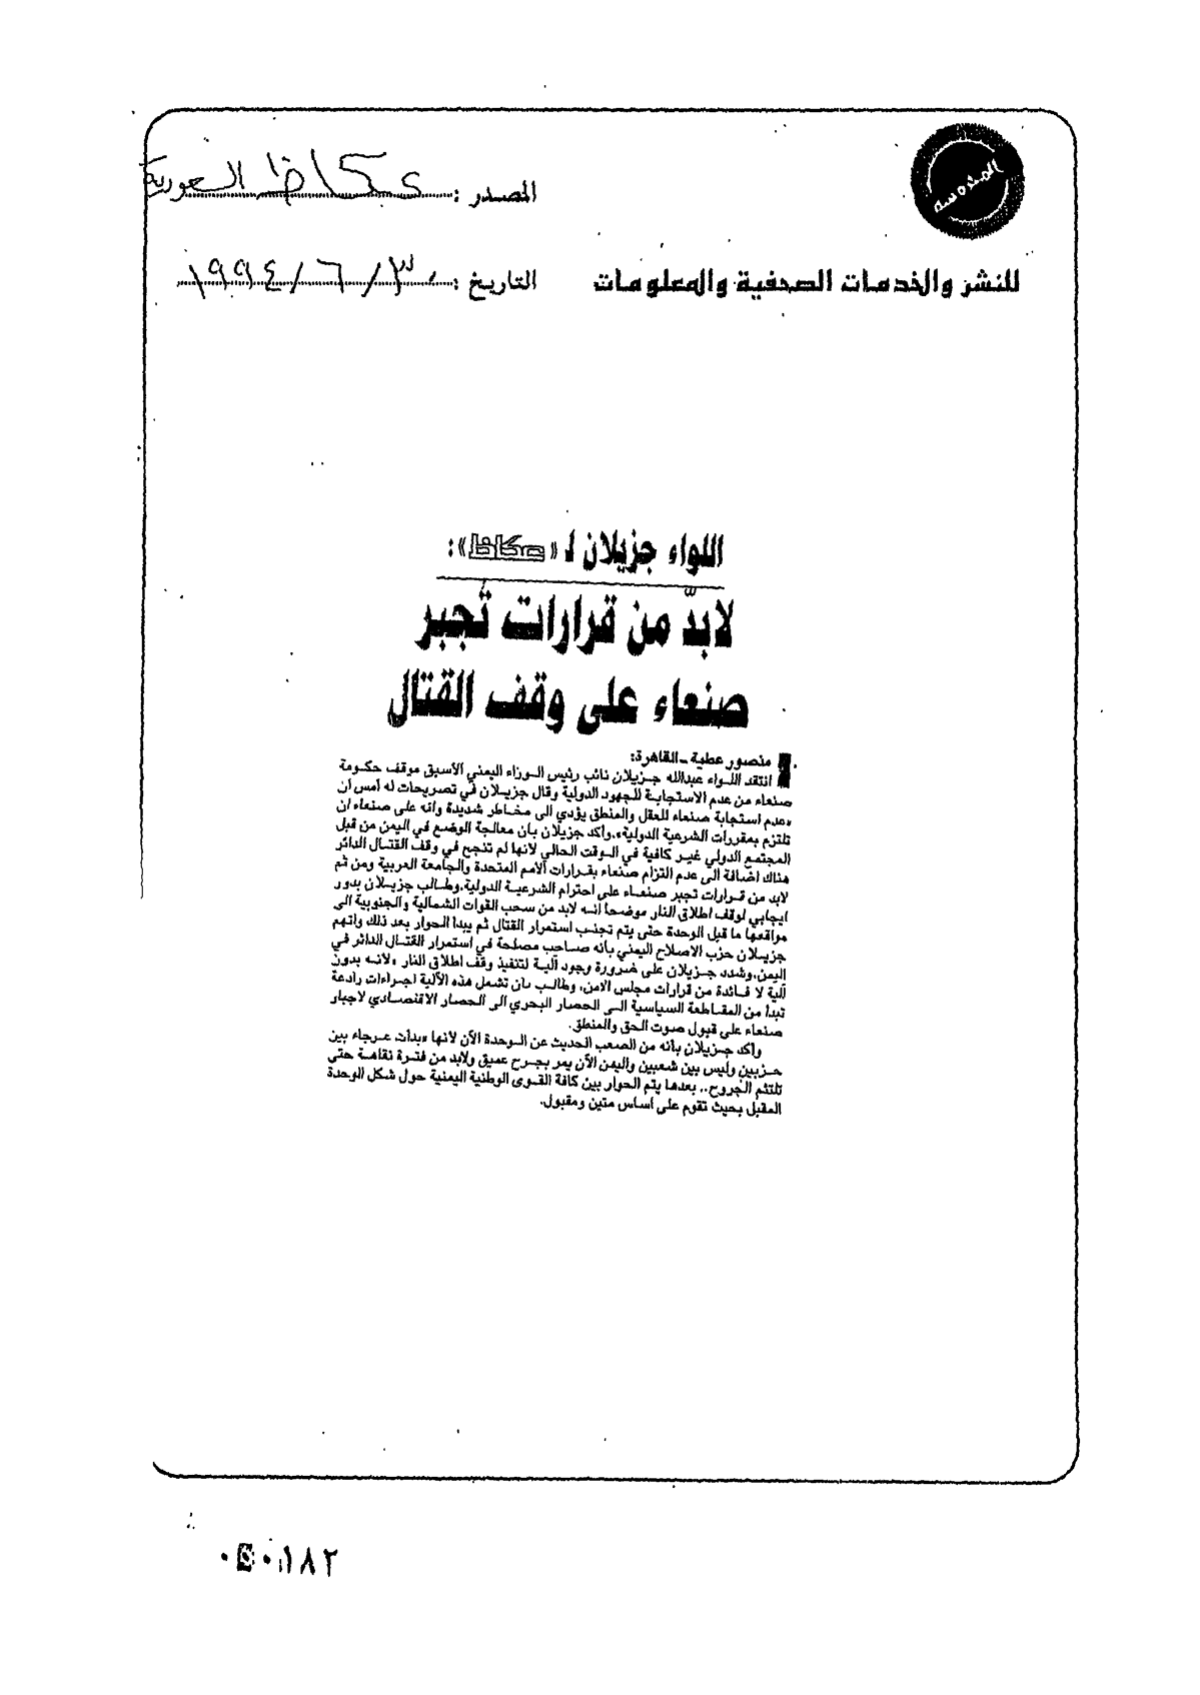 المصدر : عكاظ السعودية
للنشر والخدمات الصحفية والمعلومات
التاريخ : ٣٠/٦/١٩٩٤
اللواء جزيلان لـ «عكاظ»:
لابدّ من قرارات تُجبر
صنعاء على وقف القتال
منصور عطية ـ القاهرة:
انتقد اللواء عبدالله جزيلان نائب رئيس الوزاء اليمني الأسبق موقف حكومة
صنعاء من عدم الاستجابة للجهود الدولية وقال جزيلان في تصريحات له أمس ان
«عدم استجابة صنعاء للعقل والمنطق يؤدي الى مخاطر شديدة وانه على صنعاء ان
تلتزم بمقررات الشرعية الدولية»، وأكد جزيلان بان معالجة الوضع في اليمن من قبل
المجتمع الدولي غير كافية في الوقت الحالي لانها لم تنجح في وقف القتال الدائر
هناك اضافة الى عدم التزام صنعاء بقرارات الأمم المتحدة والجامعة العربية ومن ثم
لابد من قرارات تجبر صنعاء على احترام الشرعية الدولية، وطالب جزيلان بدور
ايجابي لوقف اطلاق النار موضحاً انه لابد من سحب القوات الشمالية والجنوبية الى
مواقعها ما قبل الوحدة حتى يتم تجنب استمرار القتال ثم يبدأ الحوار بعد ذلك واتهم
جزيلان حزب الاصلاح اليمني بأنه صاحب مصلحة في استمرار القتال الدائر في
اليمن، وشدد جزيلان على ضرورة وجود آلية لتنفيذ وقف اطلاق النار «لانه بدون
آلية لا فائدة من قرارات مجلس الامن، وطالب بان تشمل هذه الآلية اجراءات رادعة
تبدأ من المقاطعة السياسية الى الحصار البحري الى الحصار الاقتصادي لاجبار
صنعاء على قبول صوت الحق والمنطق.
وأكد جزيلان بأنه من الصعب الحديث عن الوحدة الآن لانها «بدأت عرجاء بين
حزبين وليس بين شعبين واليمن الآن يمر بجرح عميق ولابد من فترة نقاهة حتى
تلتئم الجروح.. بعدها يتم الحوار بين كافة القوى الوطنية اليمنية حول شكل الوحدة
المقبل بحيث تقوم على أساس متين ومقبول.